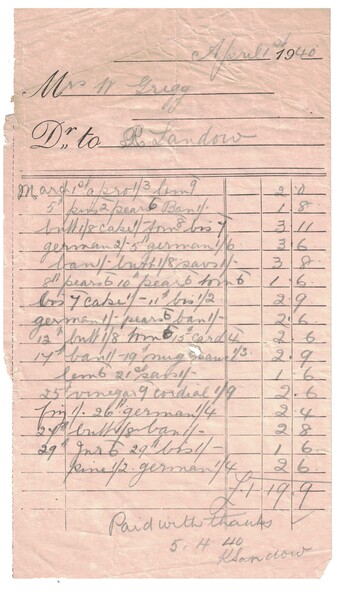 April 1st 1940
Mrs W Grigg
Dr. to R Sandow
March 1st apro 1/3 lem 9 2.0
5th pins 2 pears 6 Ban 1/- 1.8
butt 1/8 case 1/- toms bis 7 3.11
german 2/- 5th german 1/6 3.6
ban 1/- butt 1/8 savs 1/- 3.8
8th pears 6 10 pears 6 tom 6 1.6
bis 7 case 1/- 11th bis 1/2 2.9
german 1/- pears 6 ban 1/- 2.6
13th butt 1/8 tom 6 15th card 4 2.6
17th ban 1/- 19th mug 1/3. 2.9
lem 6 21st savs 1/- 1.6
25th vinegar 9 cordial 1/9 2.6
1/- 26th german 1/4 2.4
27th butt 1/8 ban 1/- 2.8
29th 6 29th bis 1/- 1.6
pine 1/2. german 1/4 2.6
£1.19.9
Paid with thanks
5.4.40
R Sandow